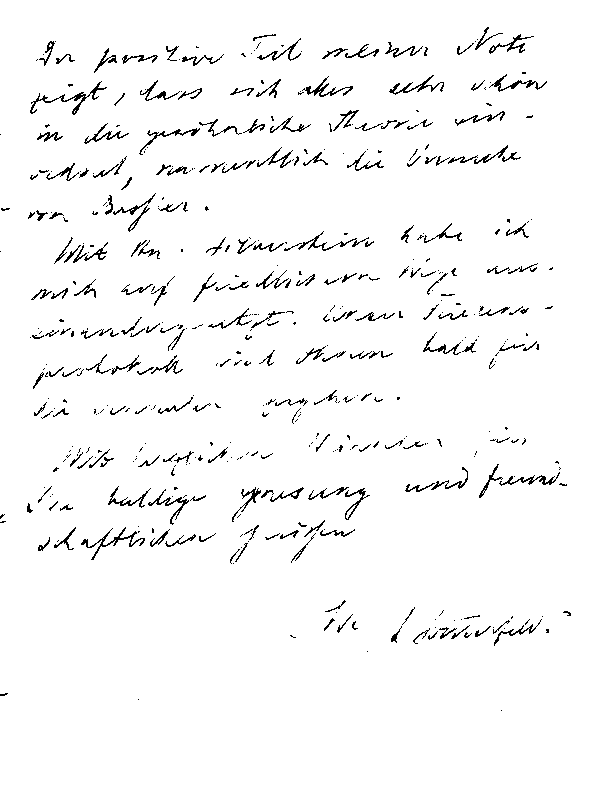 Der positive Teil meiner Note
zeigt, dass sich alles sehr schön
in die gewöhnliche Theorie ein-
ordnet, namentlich die Versuche
von
Mit Hn. habe ich
mich auf friedlichem Wege aus-
einandergesetzt. Unser Friedens-
protokoll wird Ihnen bald für
die Annalen zugehen.
Mit herzlichen Wünschen für
Ihre baldige Genesung und freund-
schaftlichen Grüßen
Ihr A. Sommerfeld.